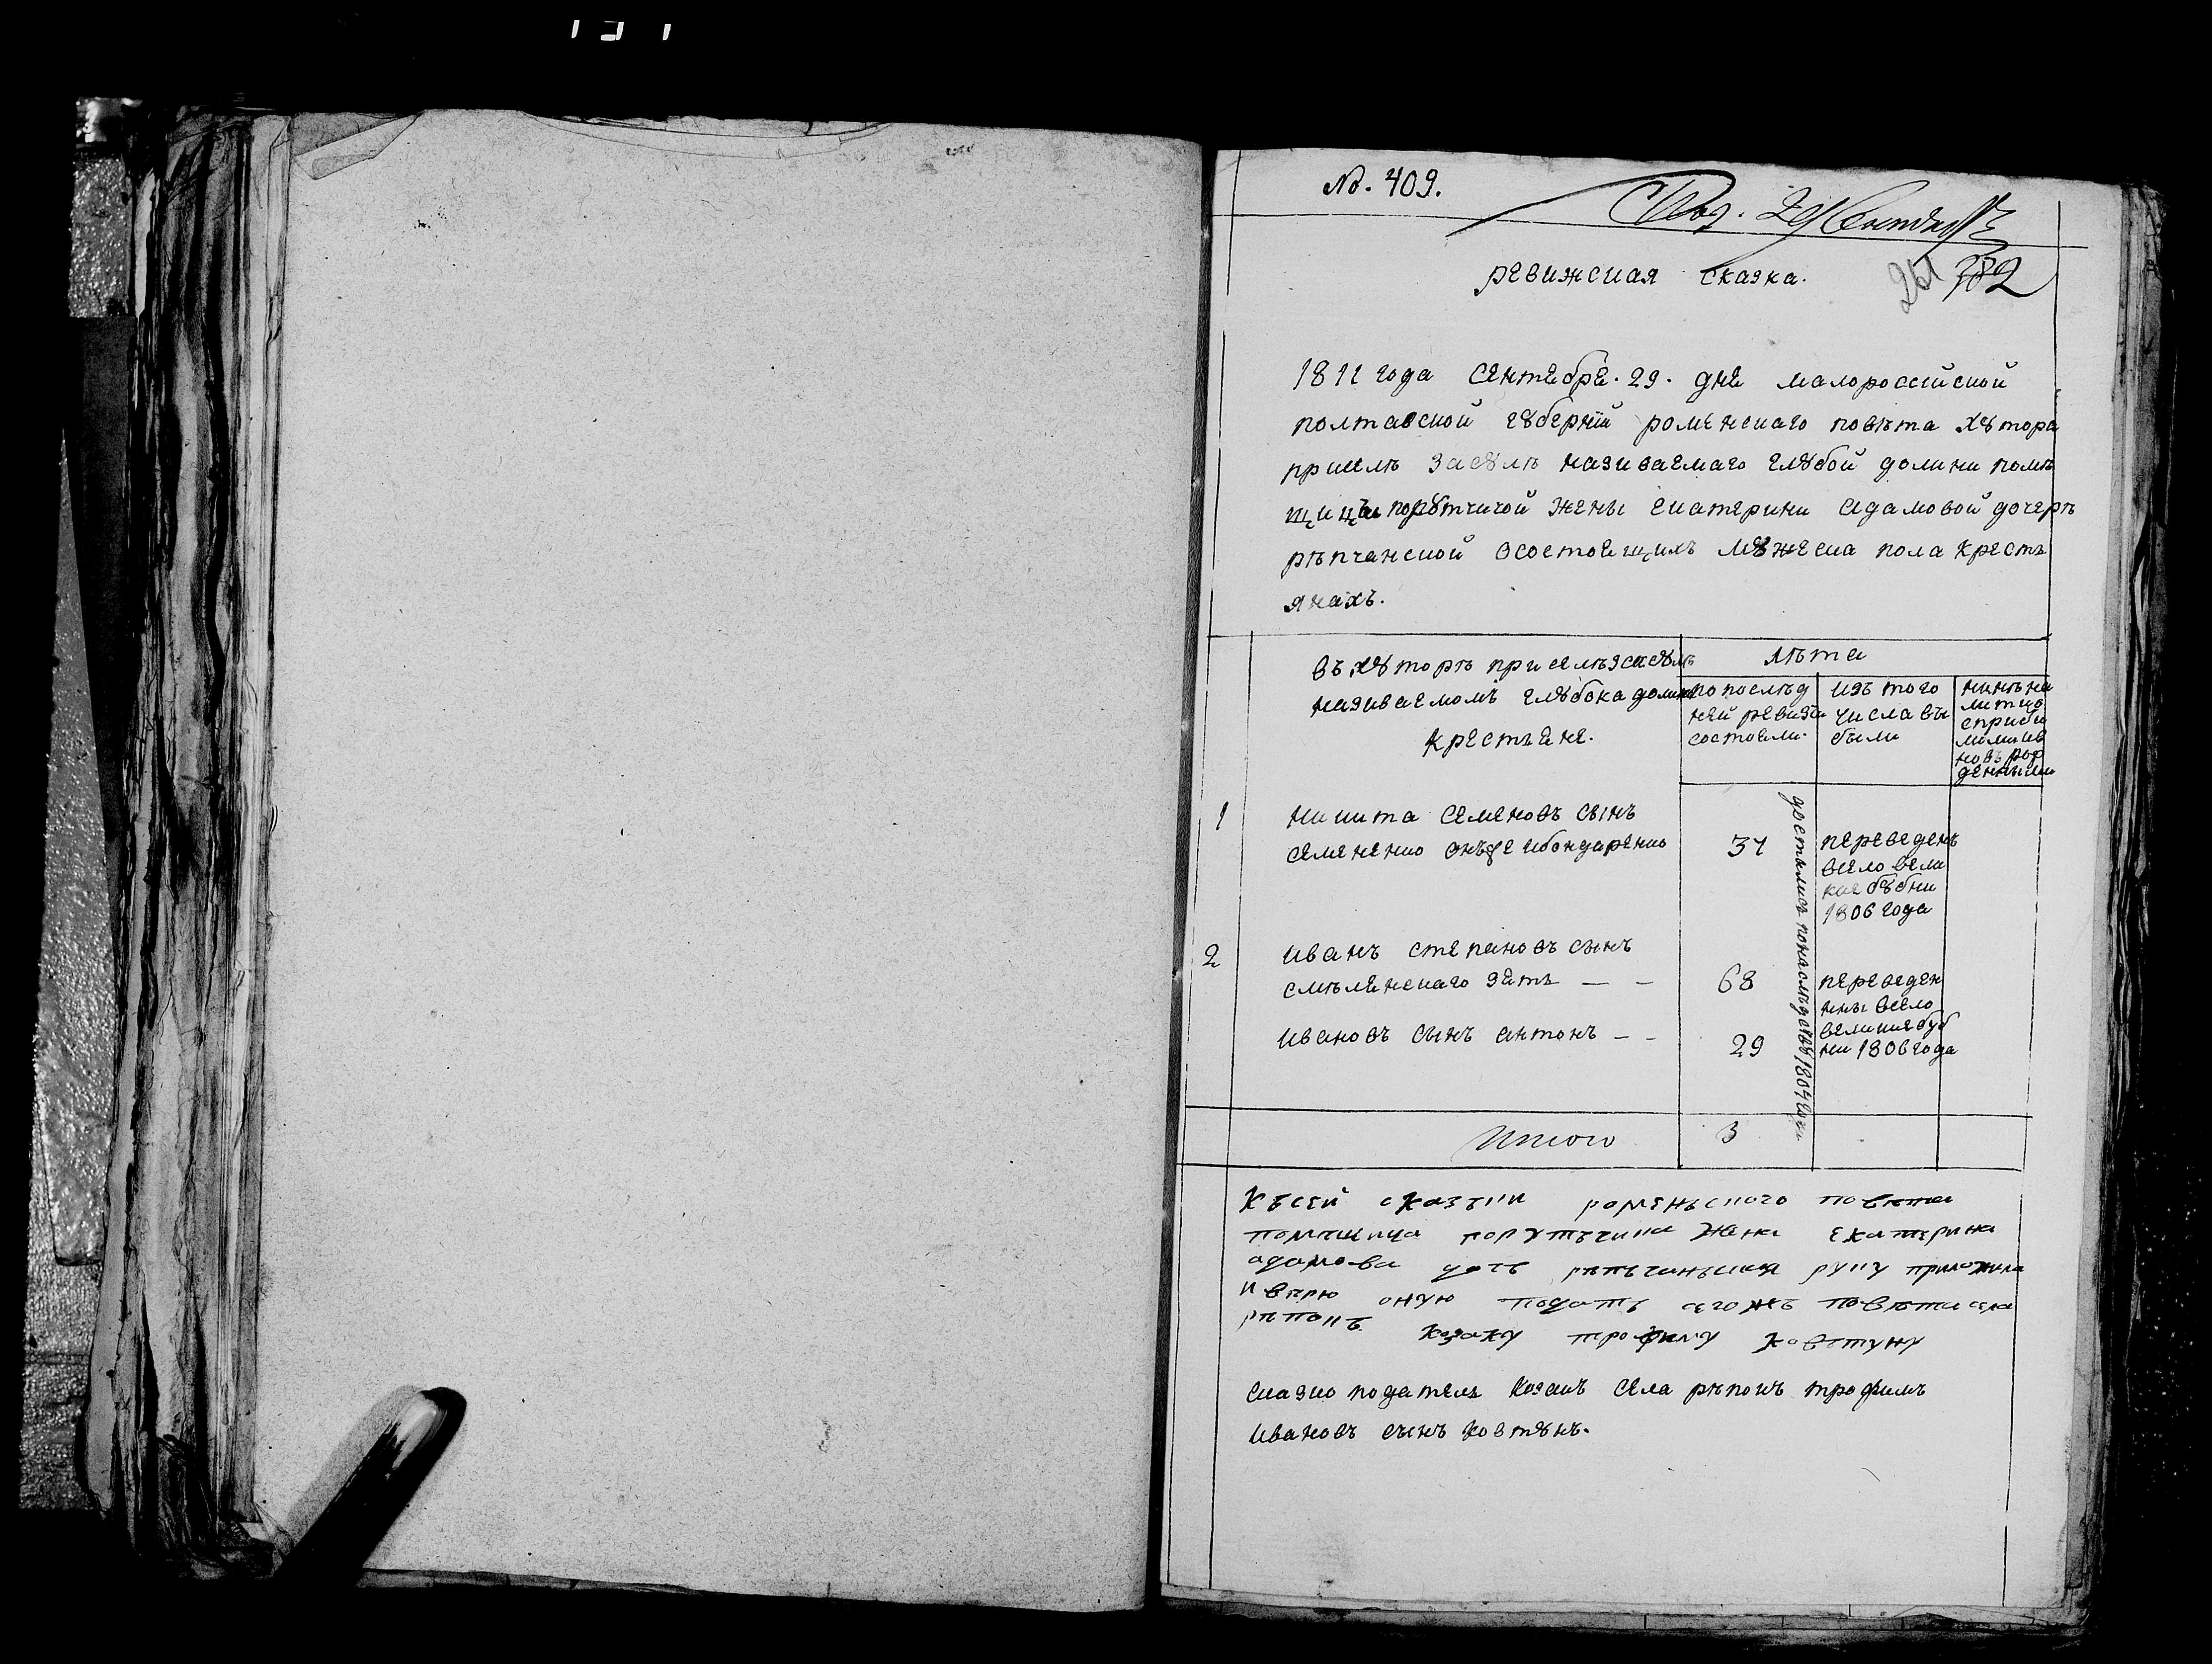 No. 409.
382
ревижская сказка.
1811 года сентебре. 29. дне малороссійской
полтавской гꙋберніи роменскаго повѣта хꙋтора
при селѣ засꙋлѣ називаемаго глꙋбой долини помѣ
щици порꙋтчичой жены екатерини адамовой дочерѣ
рѣпчанской осостоещихъ мꙋжеска пола кресть
янахъ.
въ хꙋторѣ при селѣ засꙋлѣ
називаемомъ глꙋбока долина
крестьене.
лѣта
по послѣд
ней ревизіи
состоели.
изъ того
числа вы
были
нинѣ на
лицо
сприбы
лими и в
новъ рож
денными
1
никита семеновъ сынъ
семененко онже ибондаренко
31
переведенъ
всело вели
кие бꙋбни
1806 года
2
иванъ степановъ сынъ
смѣленскаго зеть — —
68
ивановъ сынъ антонъ — -
29
переведен
ны всело
великие буб
ни 1806 года
достались понаслѣдствꙋ 1804 года
Итого
3
Къ сей сказъки роменьского повѣта
помѣщица порутъчика жена екатерина
адамова дочь рѣпъчанъская руку приложила
и вѣрю оную подать сегожъ повѣта села
рѣпокъ козаку трофиму ковътуну
сказко податель козакъ села рѣпокъ трофимъ
ивановъ сынъ ковтꙋнъ.